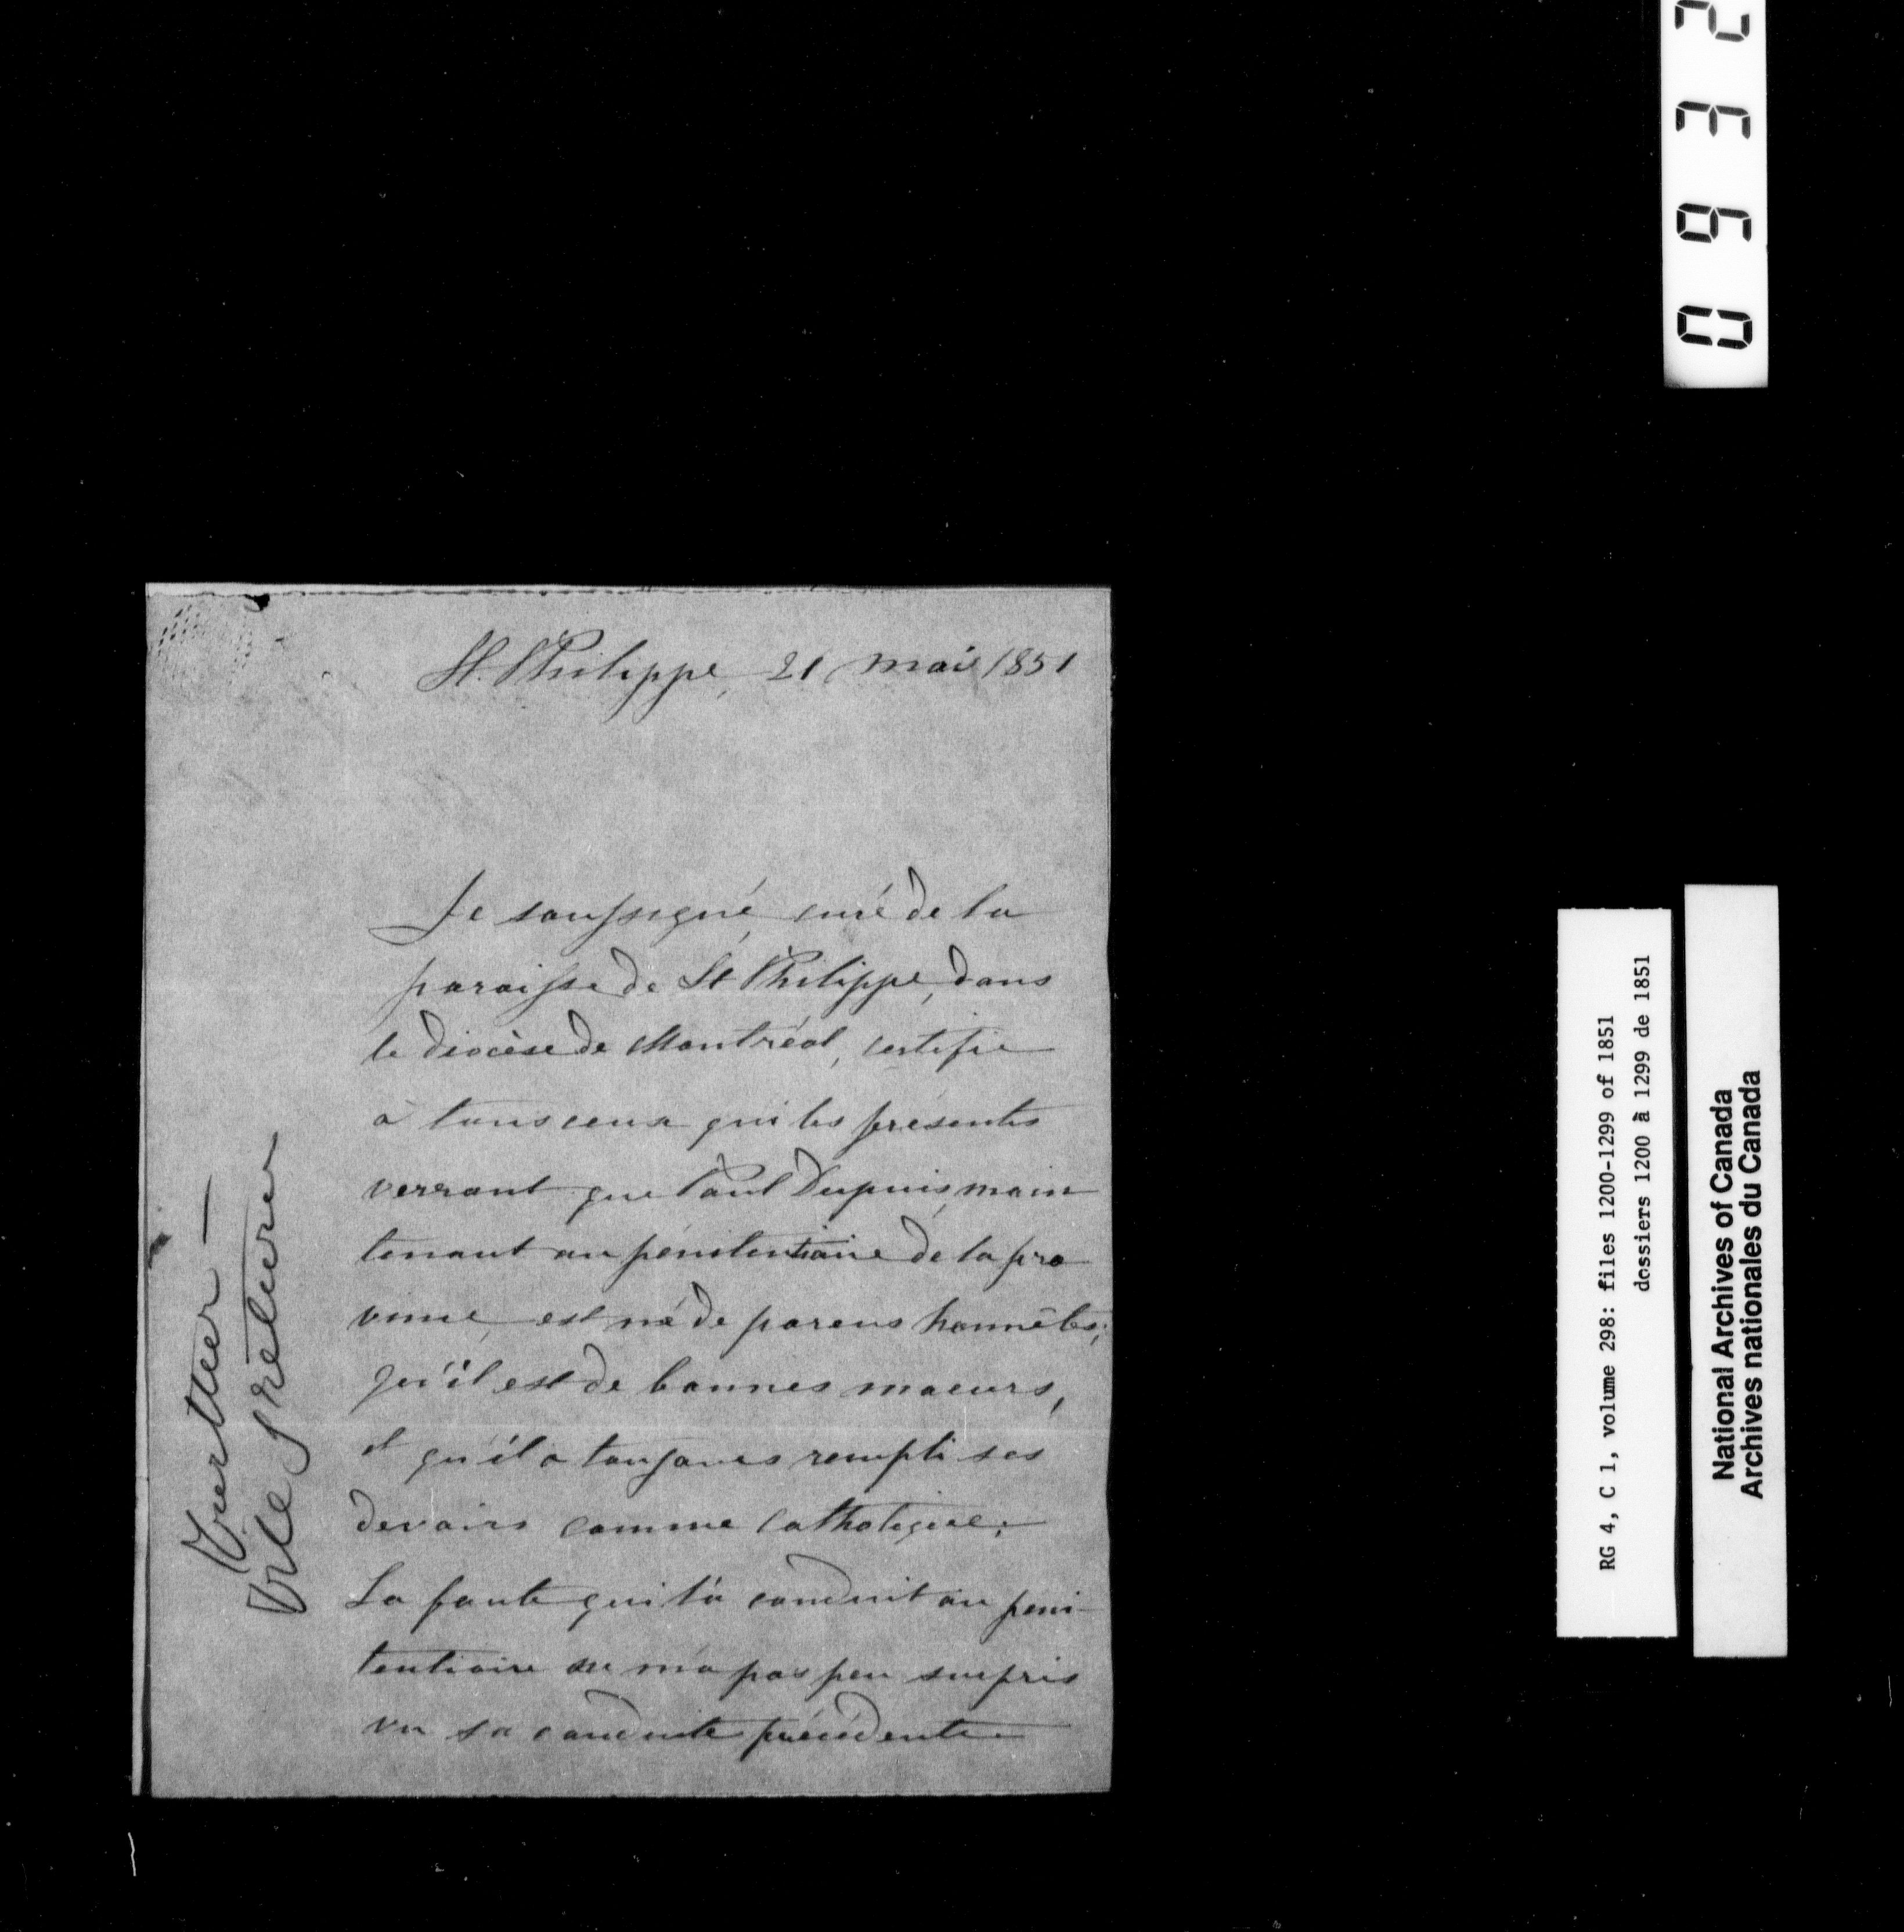 St. Philippe, 21 mai 1851
Je soussigné, curé de la
paroisse de St Philippe, dans
le diocèse de Montréal, certifie
à tous ceux qui les présentes
verront que Paul Dupuis, main
tenant au pénitentiaire de la pro
vince, est né de parens honnêtes;
qu'il est de bonnes moeurs,
et qu'il a toujours rempli ses
devoirs comme catholique.
La faute qui l'a conduit au péni-
tentiaire ne m'a pas peu surpris
vu sa conduite précédente
0932
RG 4, C 1, volume 298: files 1200-1299 of 1851
dossiers 1200 à 1299 de 1851
National Archives of Canada
Archives nationales du Canada